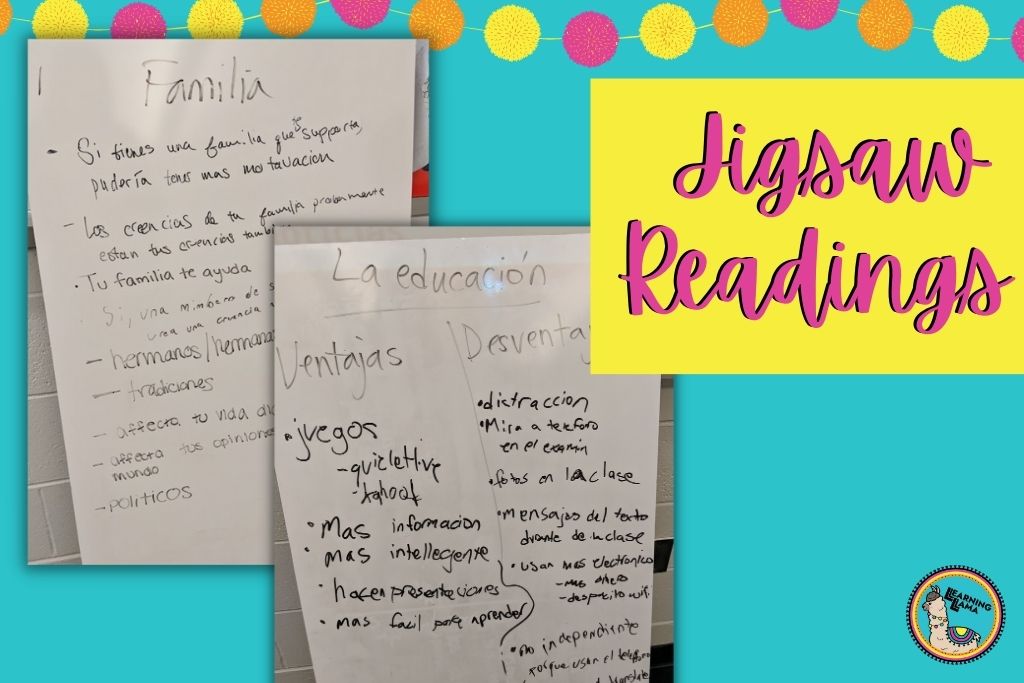 Jigsaw
Readings
Familia
- Si tienes una familia que te supporta,
puderia tener mas motavacion
- Las creencias de tu familia probamente
estan tus creencias tambi
· Tu familia te ayuda
Si, una
crea una creencia
- hermanos/hermanas
- tradiciones
- affecta tu vida
- affecta tus opiniones
mundo
- politicos
La educación
Ventajas
• juegos
- quizletlive
- kahoot
• Mas informacion
• mas intellegente
• hacen presentaciones
• mas facil para aprender
Desventaj
• distraccion
• Mira a telefono
en el examin
• fotos en la clase
• mensajos del texto
durante de la clase
• usan mas electronico
- mas dinero
- despacito wifi
• no independiente
porque usan el
LEARNING
LLAMA